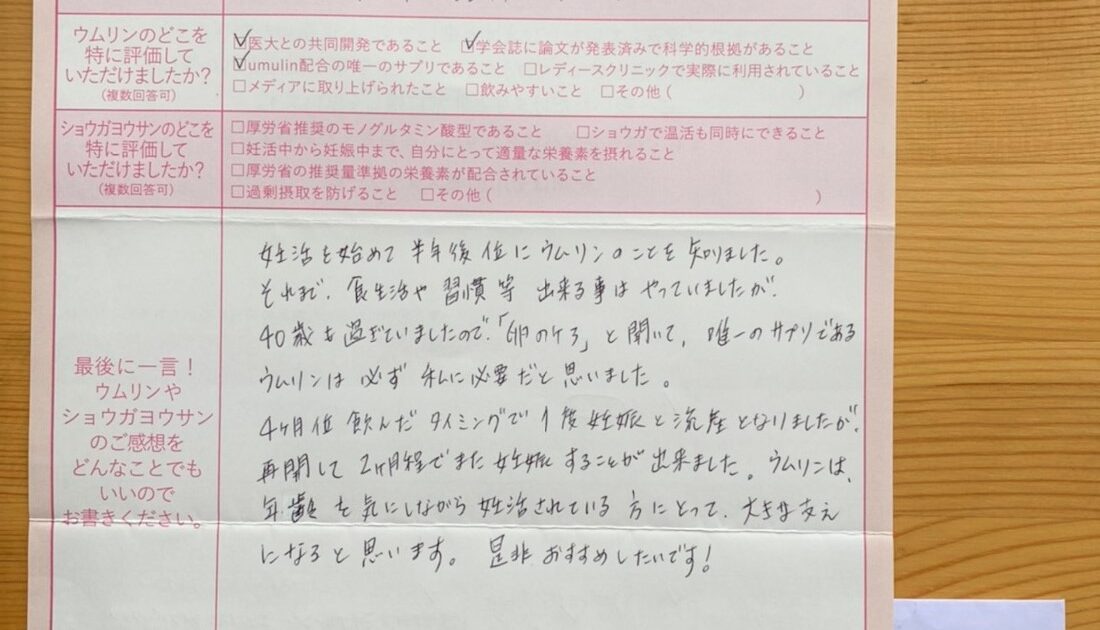 ウムリンのどこを
特に評価して
いただけましたか？
（複数回答可）
☑医大との共同開発であること ☑学会誌に論文が発表済みで科学的根拠があること
☑umulin配合の唯一のサプリであること □レディースクリニックで実際に利用されていること
□メディアに取り上げられたこと □飲みやすいこと □その他（ ）
ショウガヨウサンのどこを
特に評価して
いただけましたか？
（複数回答可）
□厚労省推奨のモノグルタミン酸型であること □ショウガで温活も同時にできること
□妊活中から妊娠中まで、自分にとって適量な栄養素を摂れること
□厚労省の推奨量準拠の栄養素が配合されていること
□過剰摂取を防げること □その他（ ）
最後に一言！
ウムリンや
ショウガヨウサン
のご感想を
どんなことでも
いいので
お書きください。
妊活を始めて半年後位にウムリンのことを知りました。
それまで、食生活や習慣等出来る事はやっていましたが、
40歳も過ぎていましたので、「卵のケア」と聞いて、唯一のサプリである
ウムリンは必ず私に必要だと思いました。
4ヶ月位飲んだタイミングで1度妊娠と流産となりましたが、
再開して2ヶ月程でまた妊娠することが出来ました。ウムリンは、
年齢を気にしながら妊活されている方にとって、大きな支え
になると思います。是非おすすめしたいです！